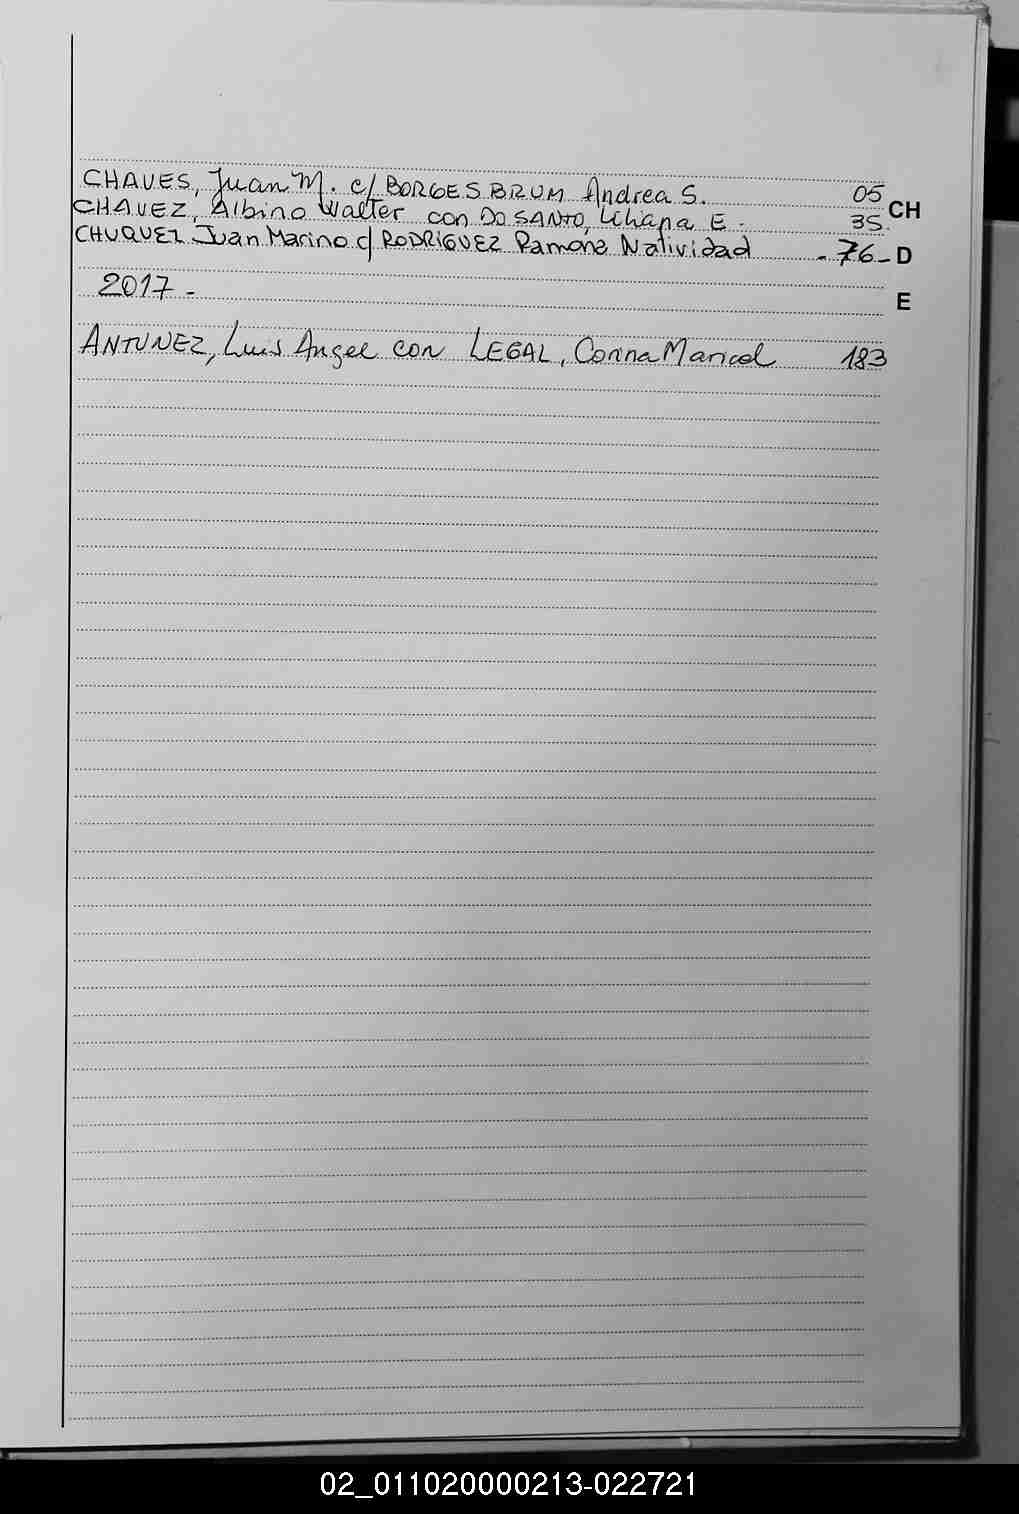 CHAVES, Juan M. c/ BORGES BRUM Andrea S. 05
CH
CHAVEZ, Albino Walter con DO SANTO, Liliana E. 35.
CHUQUEZ Juan Marino c/ RODRÍGUEZ Ramona Natividad - 76 -
D
2017 -
E
ANTUNEZ, Luis Angel con LEGAL, Corina Maricel 183
02_011020000213-022721